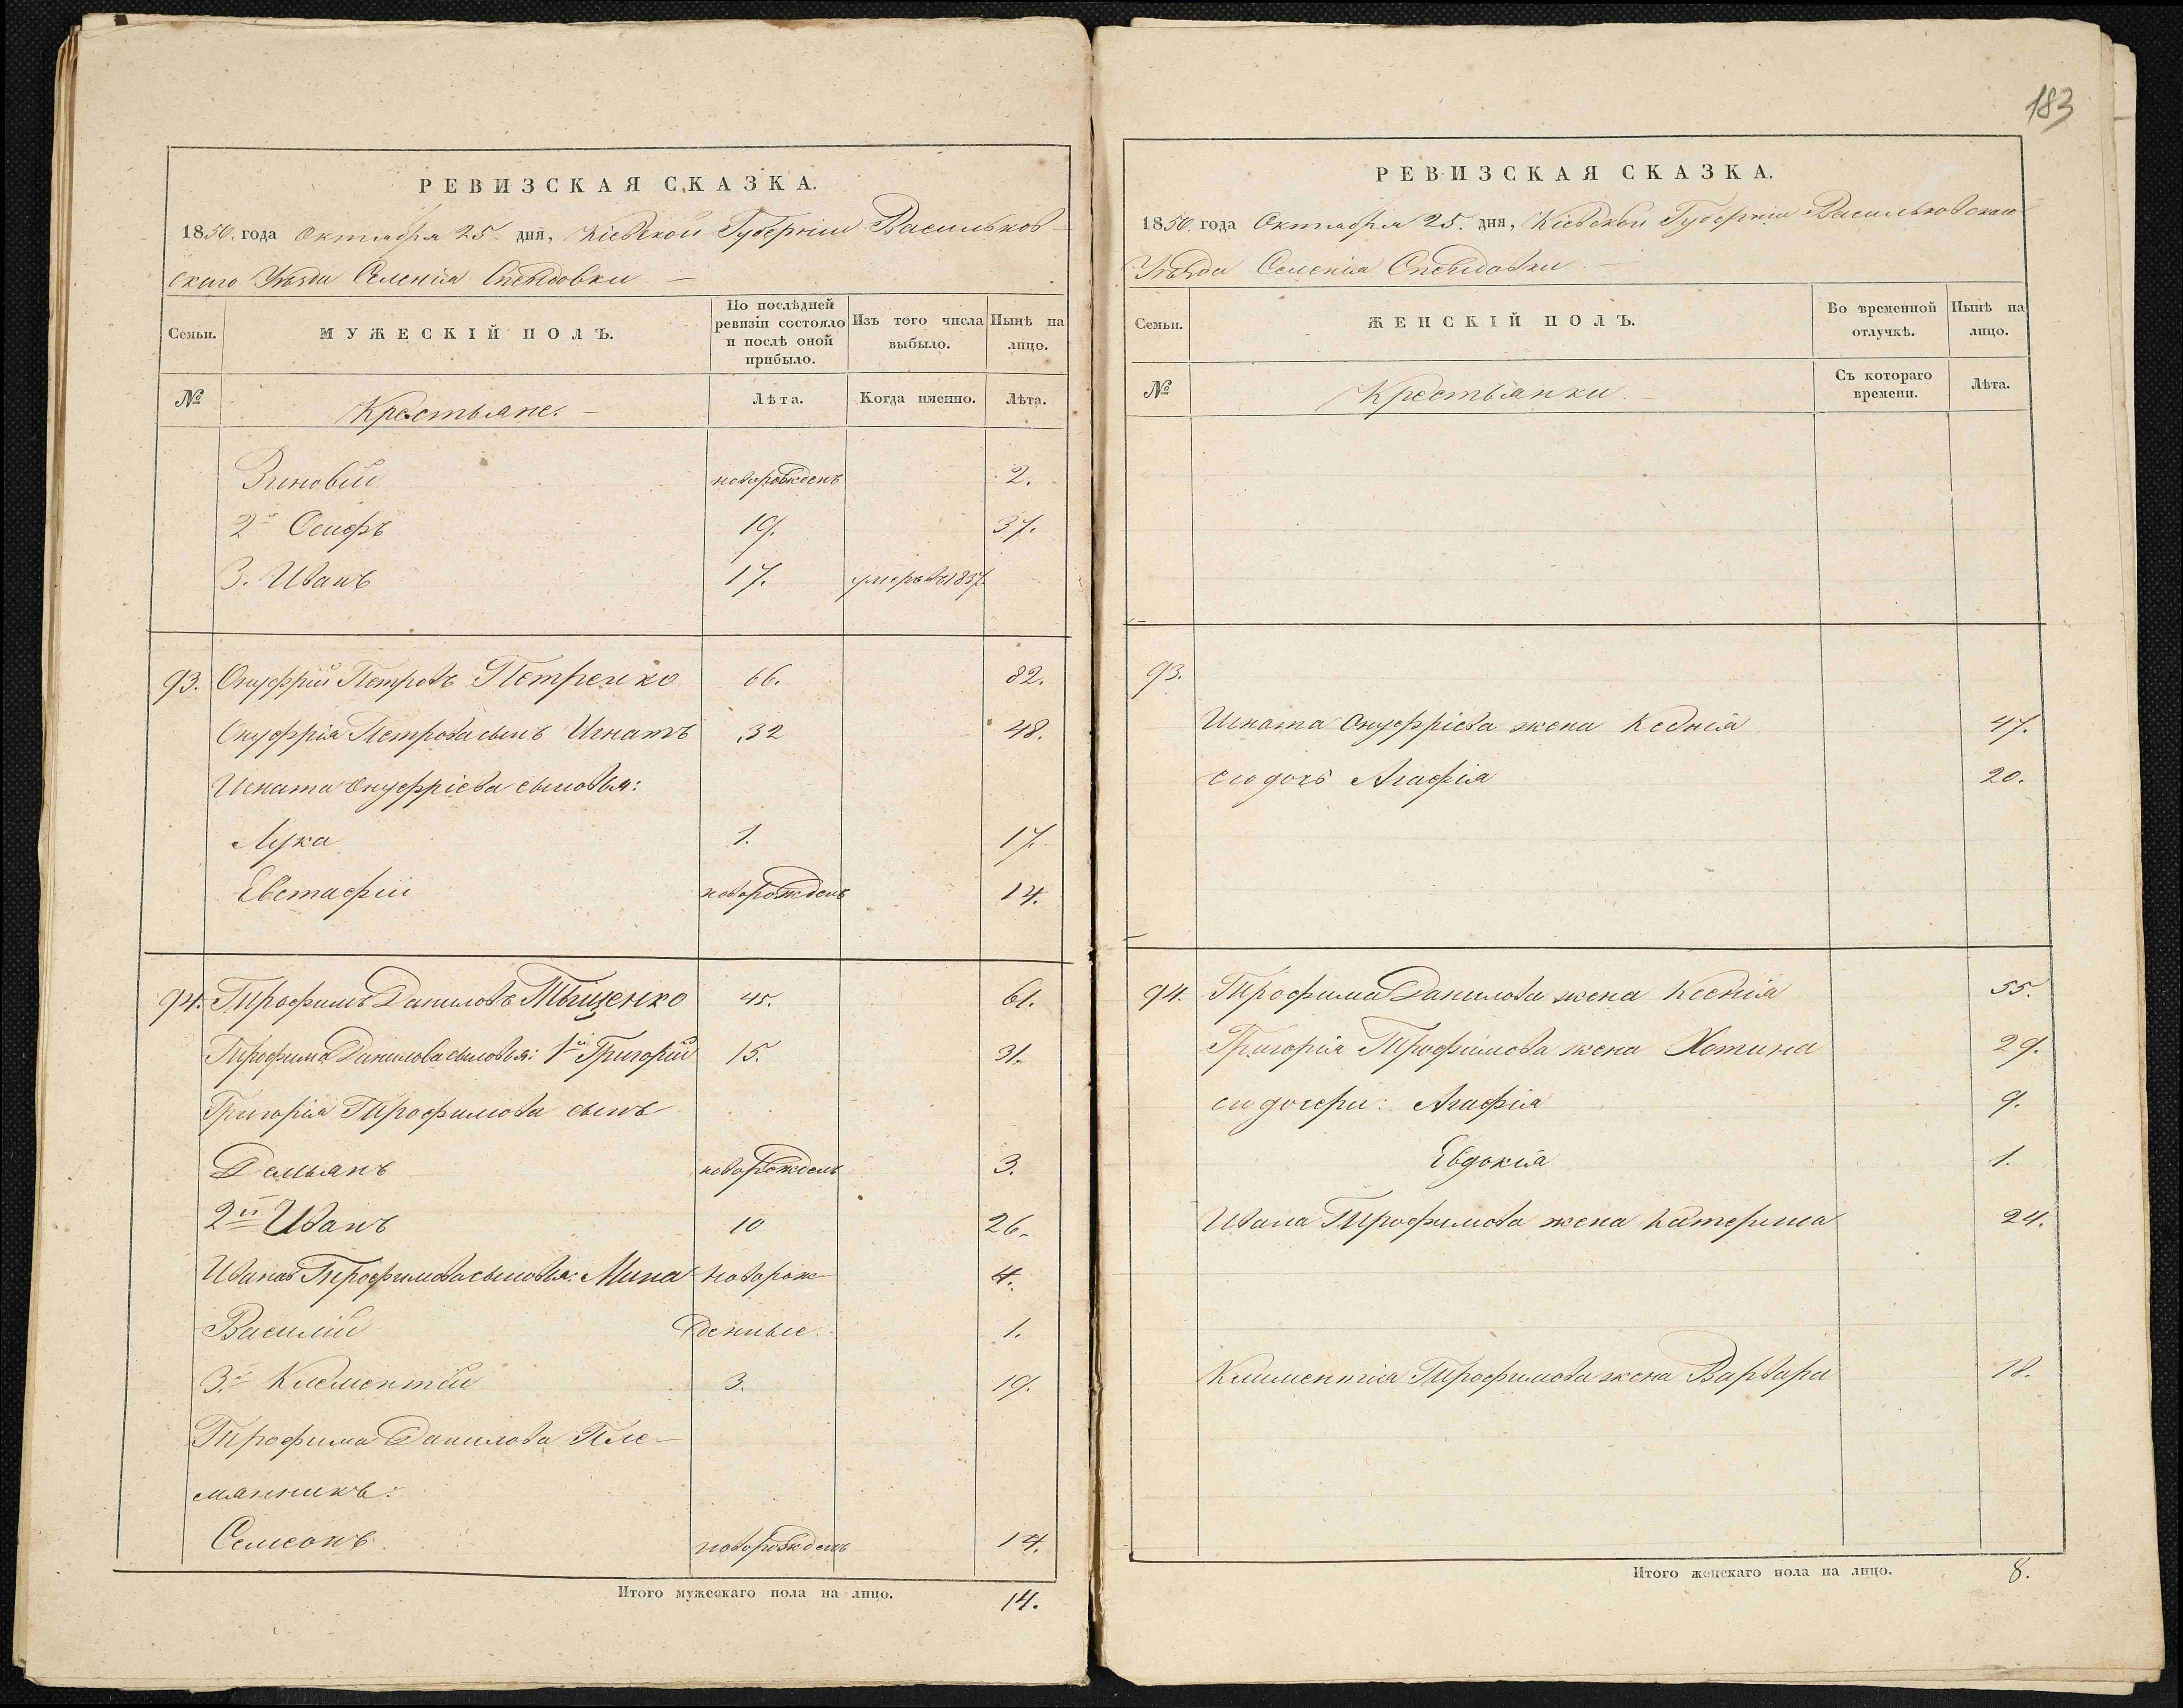 183
РЕВИЗСКАЯ СКАЗКА.
1850. года Октября 25. дня, Кіевской Губерніи Васильков-
скаго Уѣзда Селенія
Семьи.
МУЖЕСКІЙ ПОЛЪ.
По послѣдней ревизіи состояло и послѣ оной прибыло.
Изъ того числа выбыло.
Нынѣ на лицо.
№
Крестьяне.
Лѣта.
Когда именно.
Лѣта.
Зиновій новорожденъ 2.
2й Осифъ 19. 37.
3. Иванъ 17. умеръ в 1837.
93. Онуфрій Петровъ Петренко 66. 82.
Онуфрія Петрова сынъ Игнатъ 32 48.
Игната Онуфріева сыновья:
Лука 1. 17.
Евстафій новорожденъ 14.
94. Трофимъ Даниловъ Тыщенко 45. 61.
Трофима Данилова сыновья: 1й Григорій 15. 31.
Григорія Трофимова сынъ
Демьянъ новорожденъ 3.
2й Иванъ 10 26.
Ивана Трофимова сыновья: Мина новорож- 4.
Василій денные. 1.
3й Клементій 3. 19.
Трофима Данилова Пле-
мянникъ:
Семеонъ новорожденъ 14.
Итого мужескаго пола на лицо. 14.
РЕВИЗСКАЯ СКАЗКА.
1850. года Октября 25. дня, Кіевской Губерніи Васильковскаго
Уѣзда Селенія
Семьи.
ЖЕНСКІЙ ПОЛЪ.
Во временной отлучкѣ.
Нынѣ на лицо.
№
Крестьянки
Съ котораго времени.
Лѣта.
93.
Игната Онуфріева жена Ксенія 47.
его дочь Агафія 20.
94. Трофима Данилова жена Ксенія 55.
Григорія Трофимова жена Хотина 29.
его дочери: Агафія 9.
Евдокія 1.
Ивана Трофимова жена Катерина 24.
Климентія Трофимова жена Варвара 18.
Итого женскаго пола на лицо. 8.